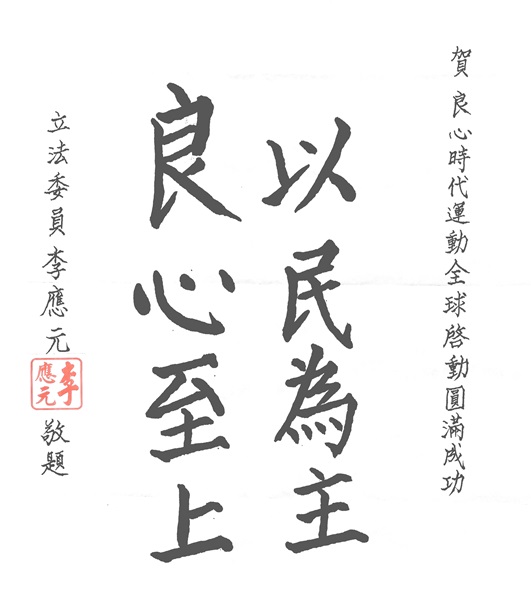 賀良心時代運動全球啓動圓滿成功
以民為主
良心至上
立法委員李應元
李應元
敬題